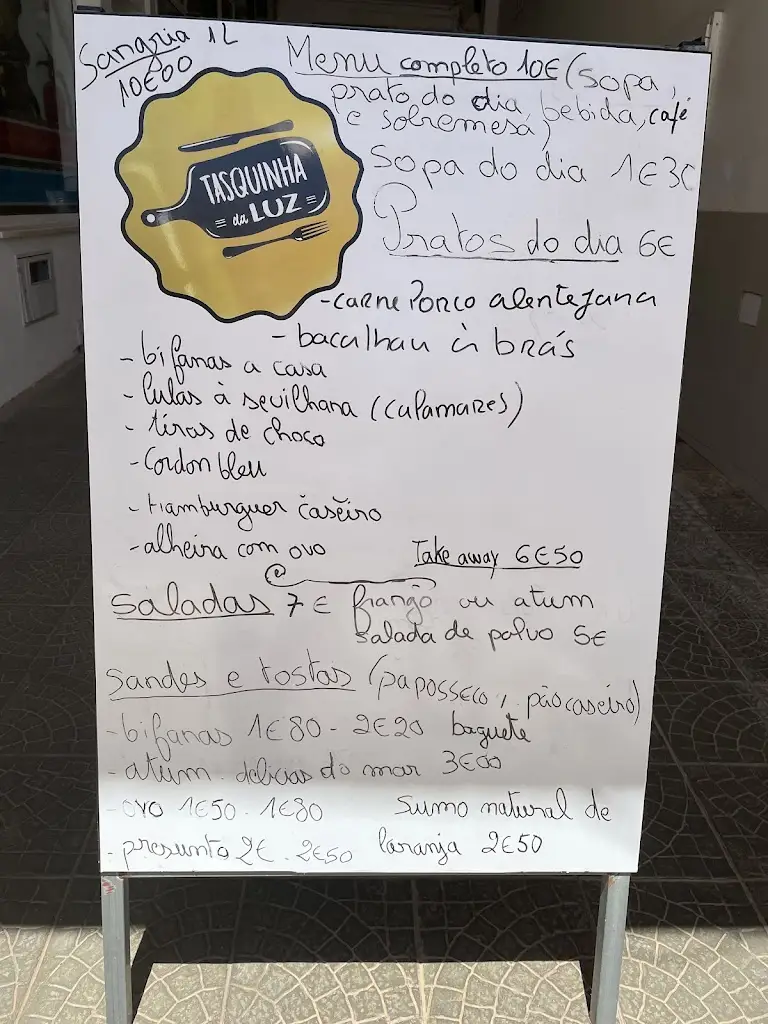 Sangria 1L
10€00
Menu completo 10€ (sopa,
prato do dia, bebida, café
e sobremesa)
TASQUINHA
da LUZ
Sopa do dia 1€30
Pratos do dia 6€
-carne Porco alentejana
- bacalhau à brás
- bifanas a casa
- lulas à sevilhana (calamares)
- tiras de choco
- Cordon bleu
- Hamburguer caseiro
- alheira com ovo
Take away 6€50
Saladas 7€ frango ou atum
Salada de polvo 5€
Sandes e tostas (paposseco, pão caseiro)
- bifanas 1€80 - 2€20 baguete
- atum. delicias do mar 3€00
- ovo 1€50 . 1€80
- presunto 2€ . 2€50
Sumo natural de
laranja 2€50